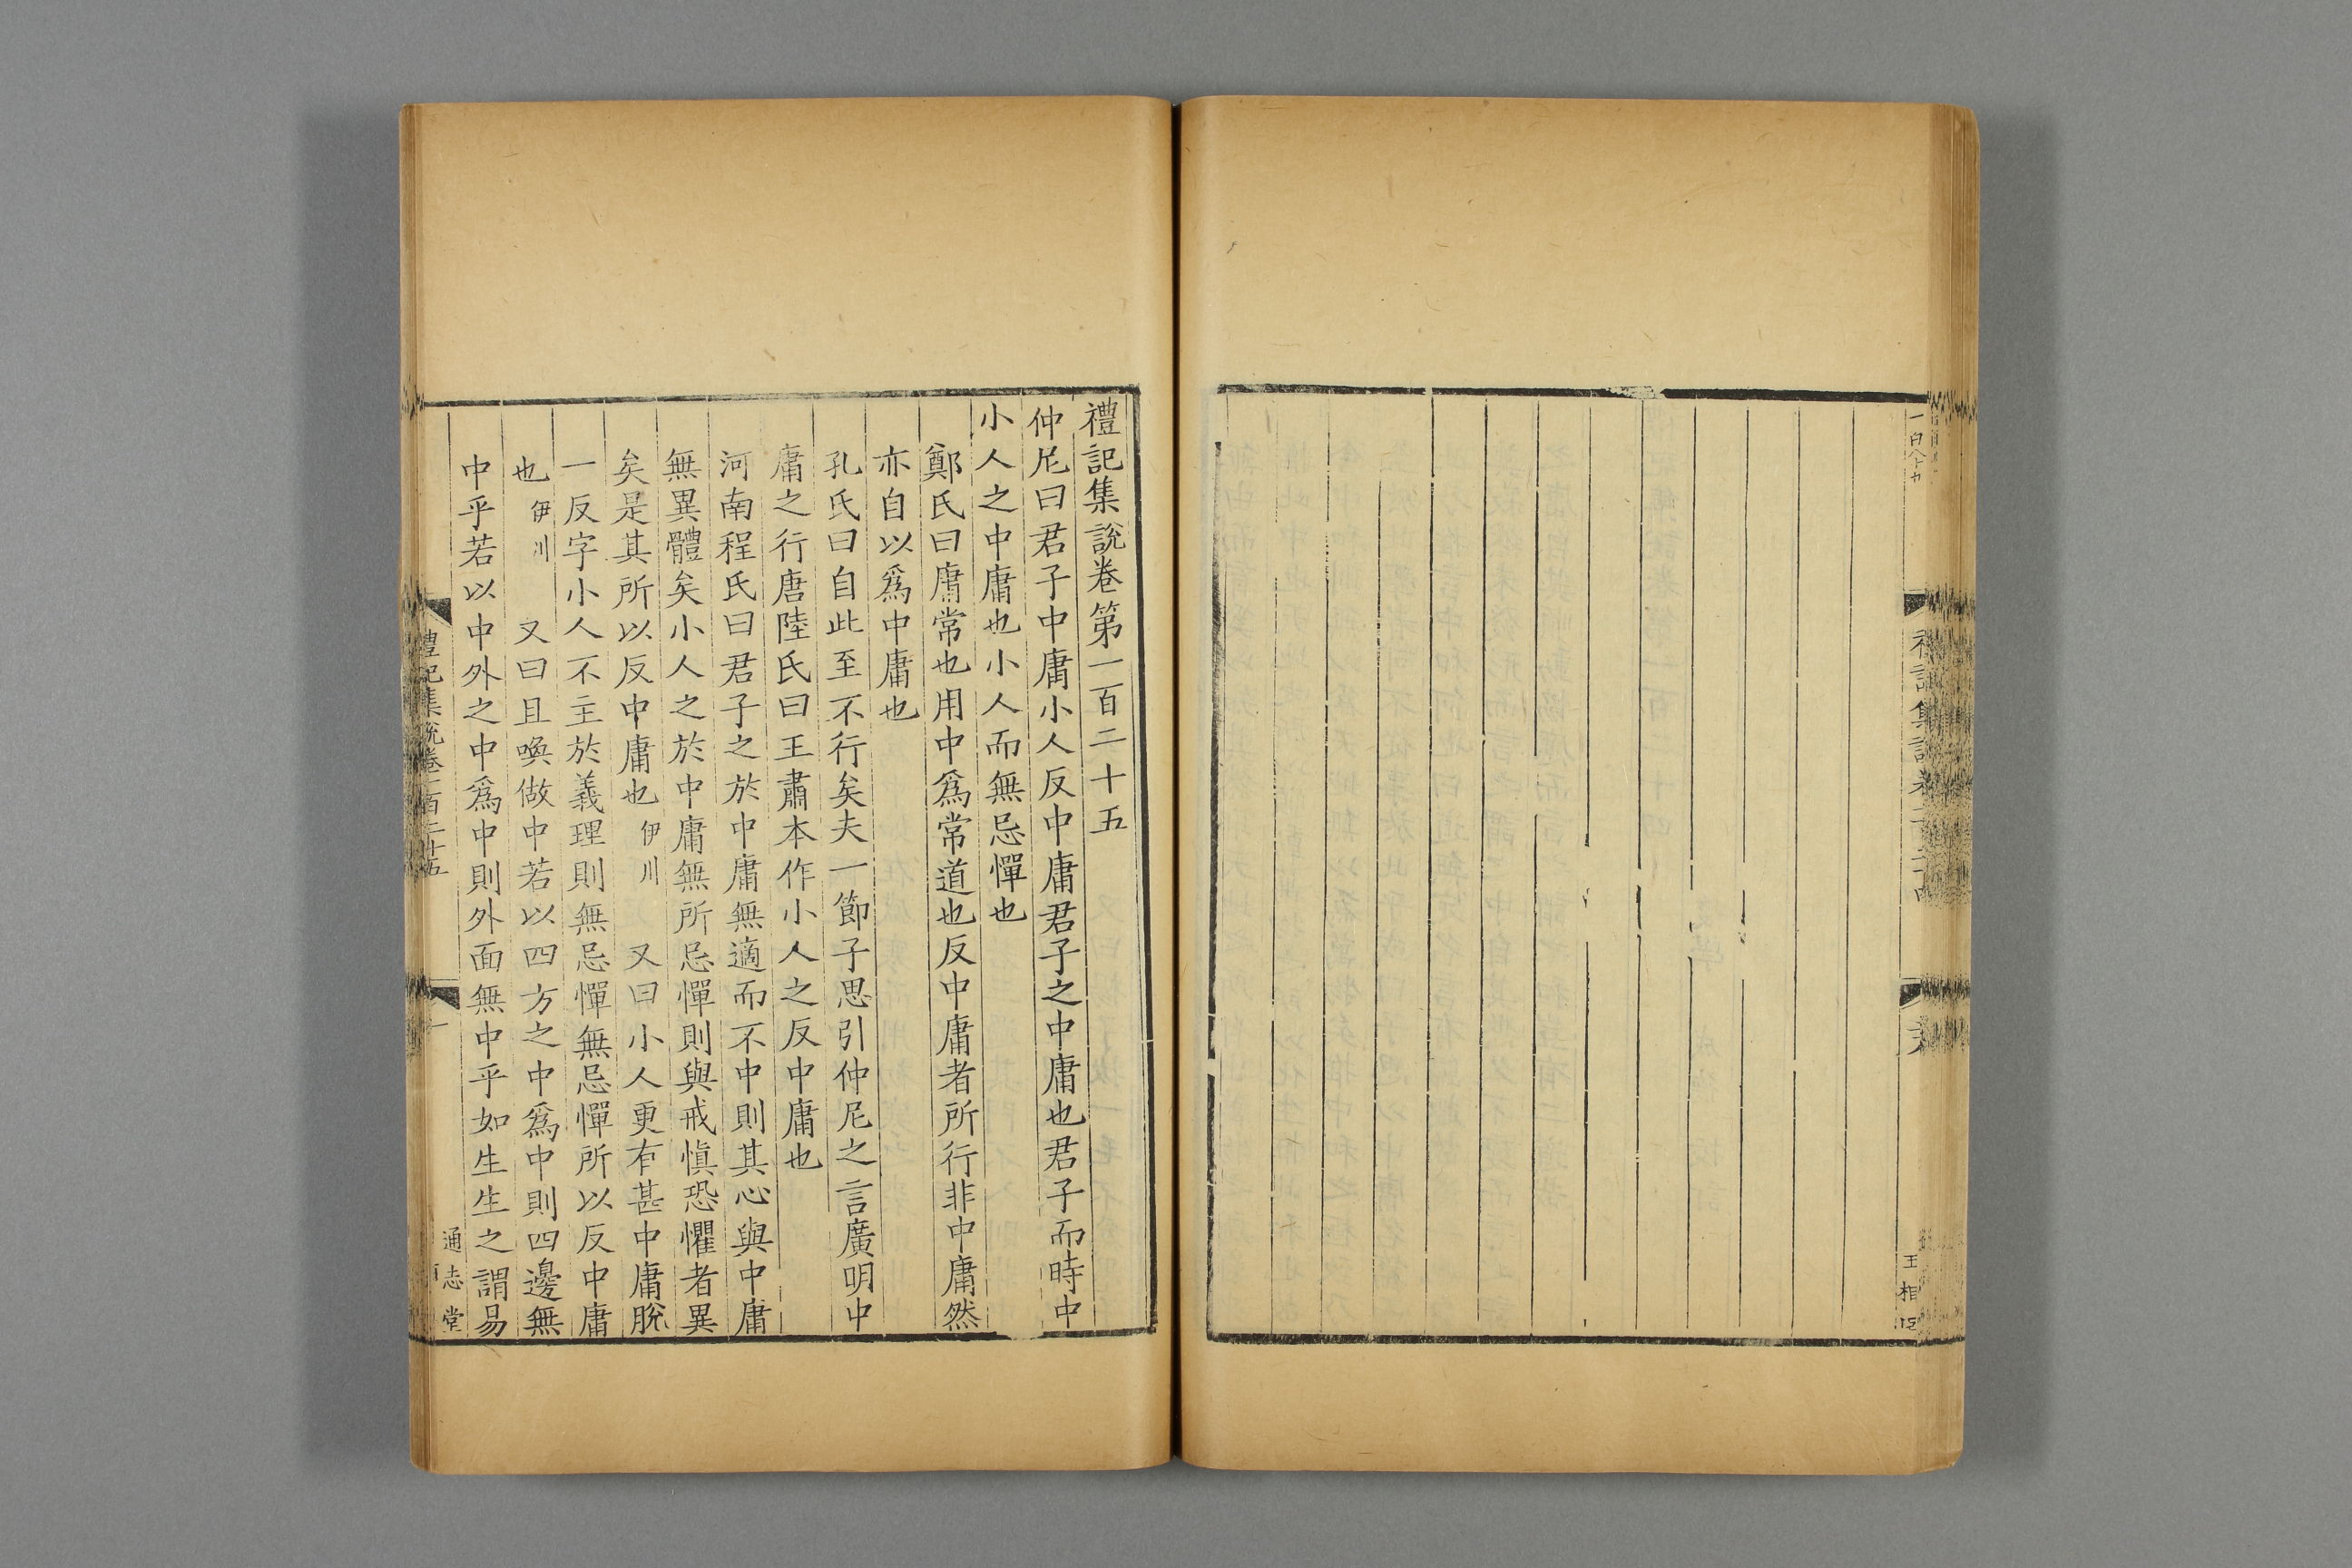 一百八十九
禮記集說卷一百二十四
王相
禮記集說卷第一百二十五
仲尼曰君子中庸小人反中庸君子之中庸也君子而時中
小人之中庸也小人而無忌憚也
鄭氏曰庸常也用中爲常道也反中庸者所行非中庸然
亦自以爲中庸也
孔氏曰自此至不行矣夫一節子思引仲尼之言廣明中
庸之行唐陸氏曰王肅本作小人之反中庸也
河南程氏曰君子之於中庸無適而不中則其心與中庸
無異體矣小人之於中庸無所忌憚則與戒愼恐懼者異
矣是其所以反中庸也伊川 又曰小人更有甚中庸脫
一反字小人不主於義理則無忌憚無忌憚所以反中庸
也伊川 又曰且喚做中若以四方之中爲中則四邊無
中乎若以中外之中爲中則外面無中乎如生生之謂易
禮記集說卷一百二十五
一
通志堂